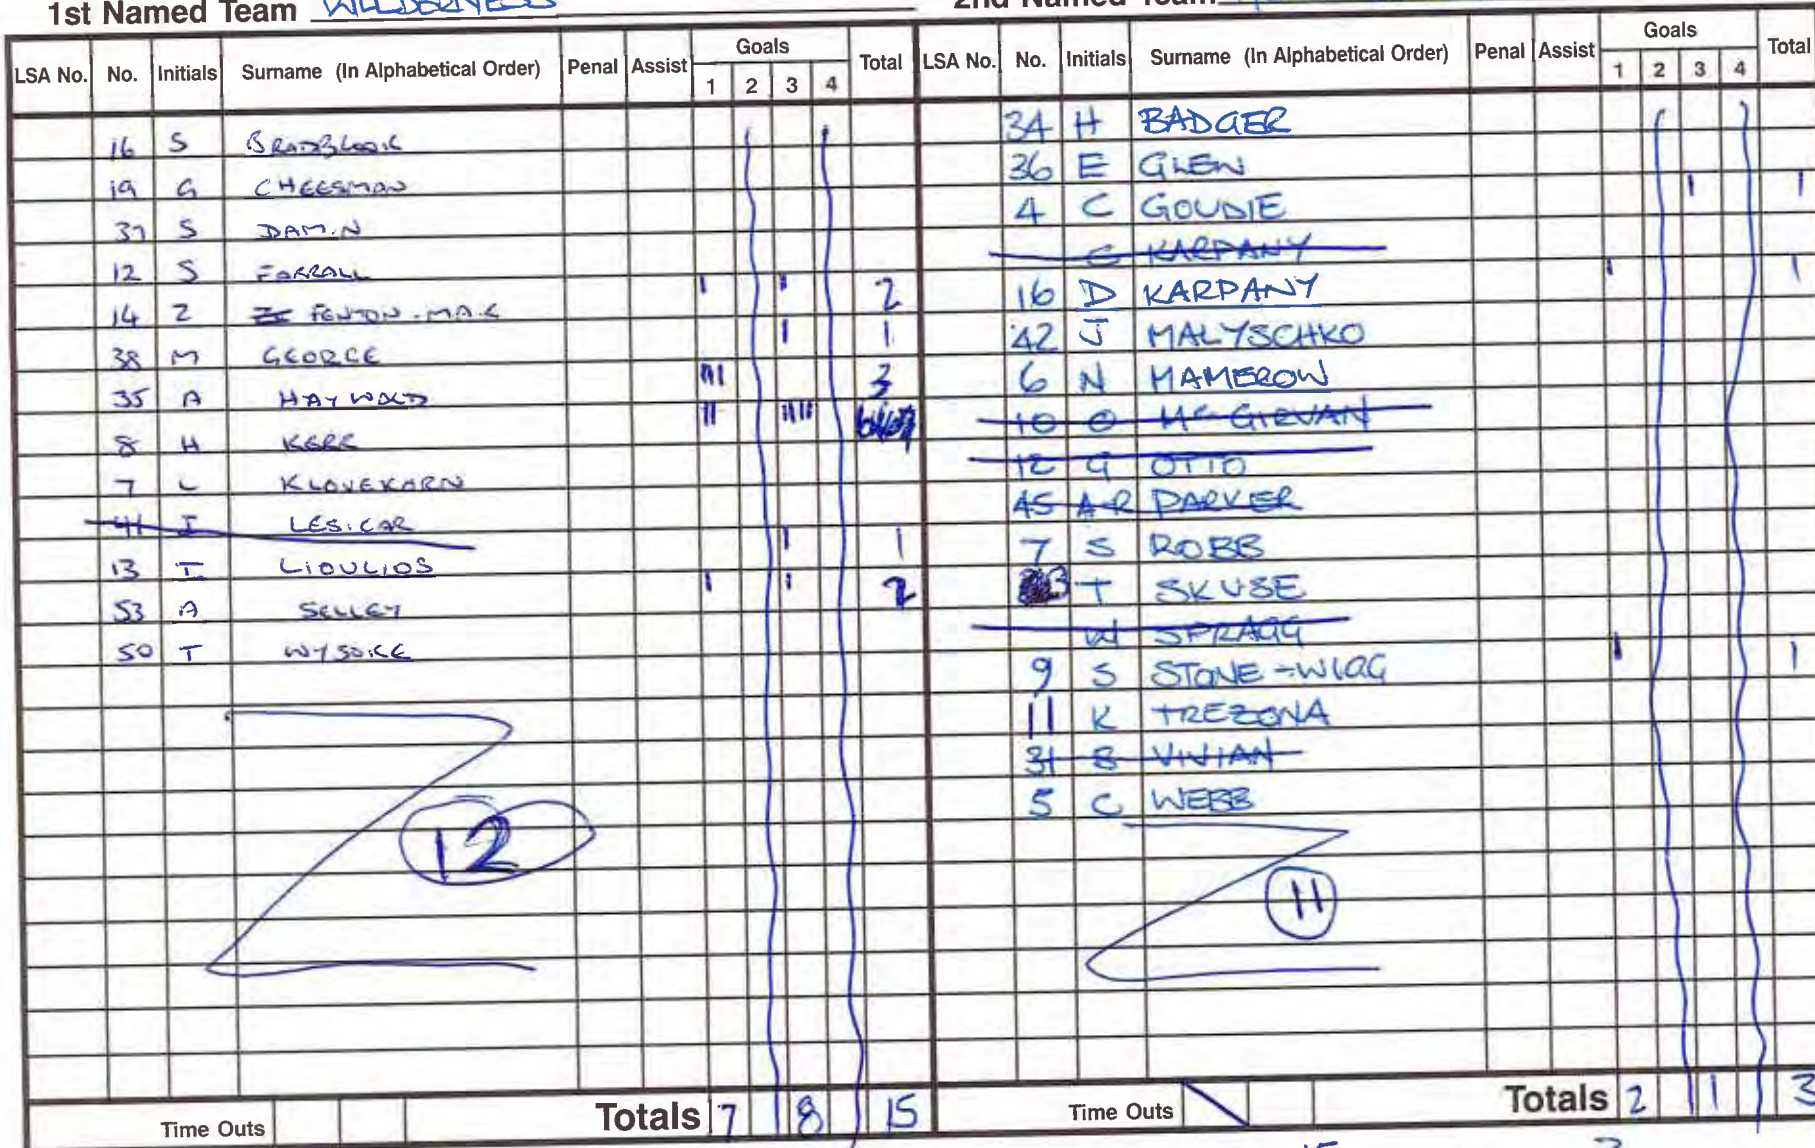 1st Named Team WILDERNESS 2nd Named Team
LSA No. No. Initials Surname (In Alphabetical Order) Penal Assist Goals 1 2 3 4 Total
16 S
19 G CHEESMAN
37 S DAMIN
12 S FARRALL
14 Z FENTON-MAIK 1 1 2
38 M GEORGE 1 1
35 A HAYWOLD III 3
8 H KERR II IIII
7 L KLOVEKORN
41 I LESICAR
13 T LIOULIOS 1 1
53 A SELLEY 1 1 2
50 T WYSOKE
12
Time Outs Totals 7 8 15
LSA No. No. Initials Surname (In Alphabetical Order) Penal Assist Goals 1 2 3 4 Total
34 H BADGER
36 E GLEN
4 C GOUDIE 1 1
C KARPANY
16 D KARPANY 1 1
42 J MALYSCHKO
6 N MAMEROW
10 O McGIRVAN
12 G OTTO
45 A-R PARKER
7 S ROBB
3 T SKUSE
W SPRAGG
9 S STONE-WIGG 1 1
11 K TREZONA
31 B VIVIAN
5 C WEBB
11
Time Outs Totals 2 1 3
15 3